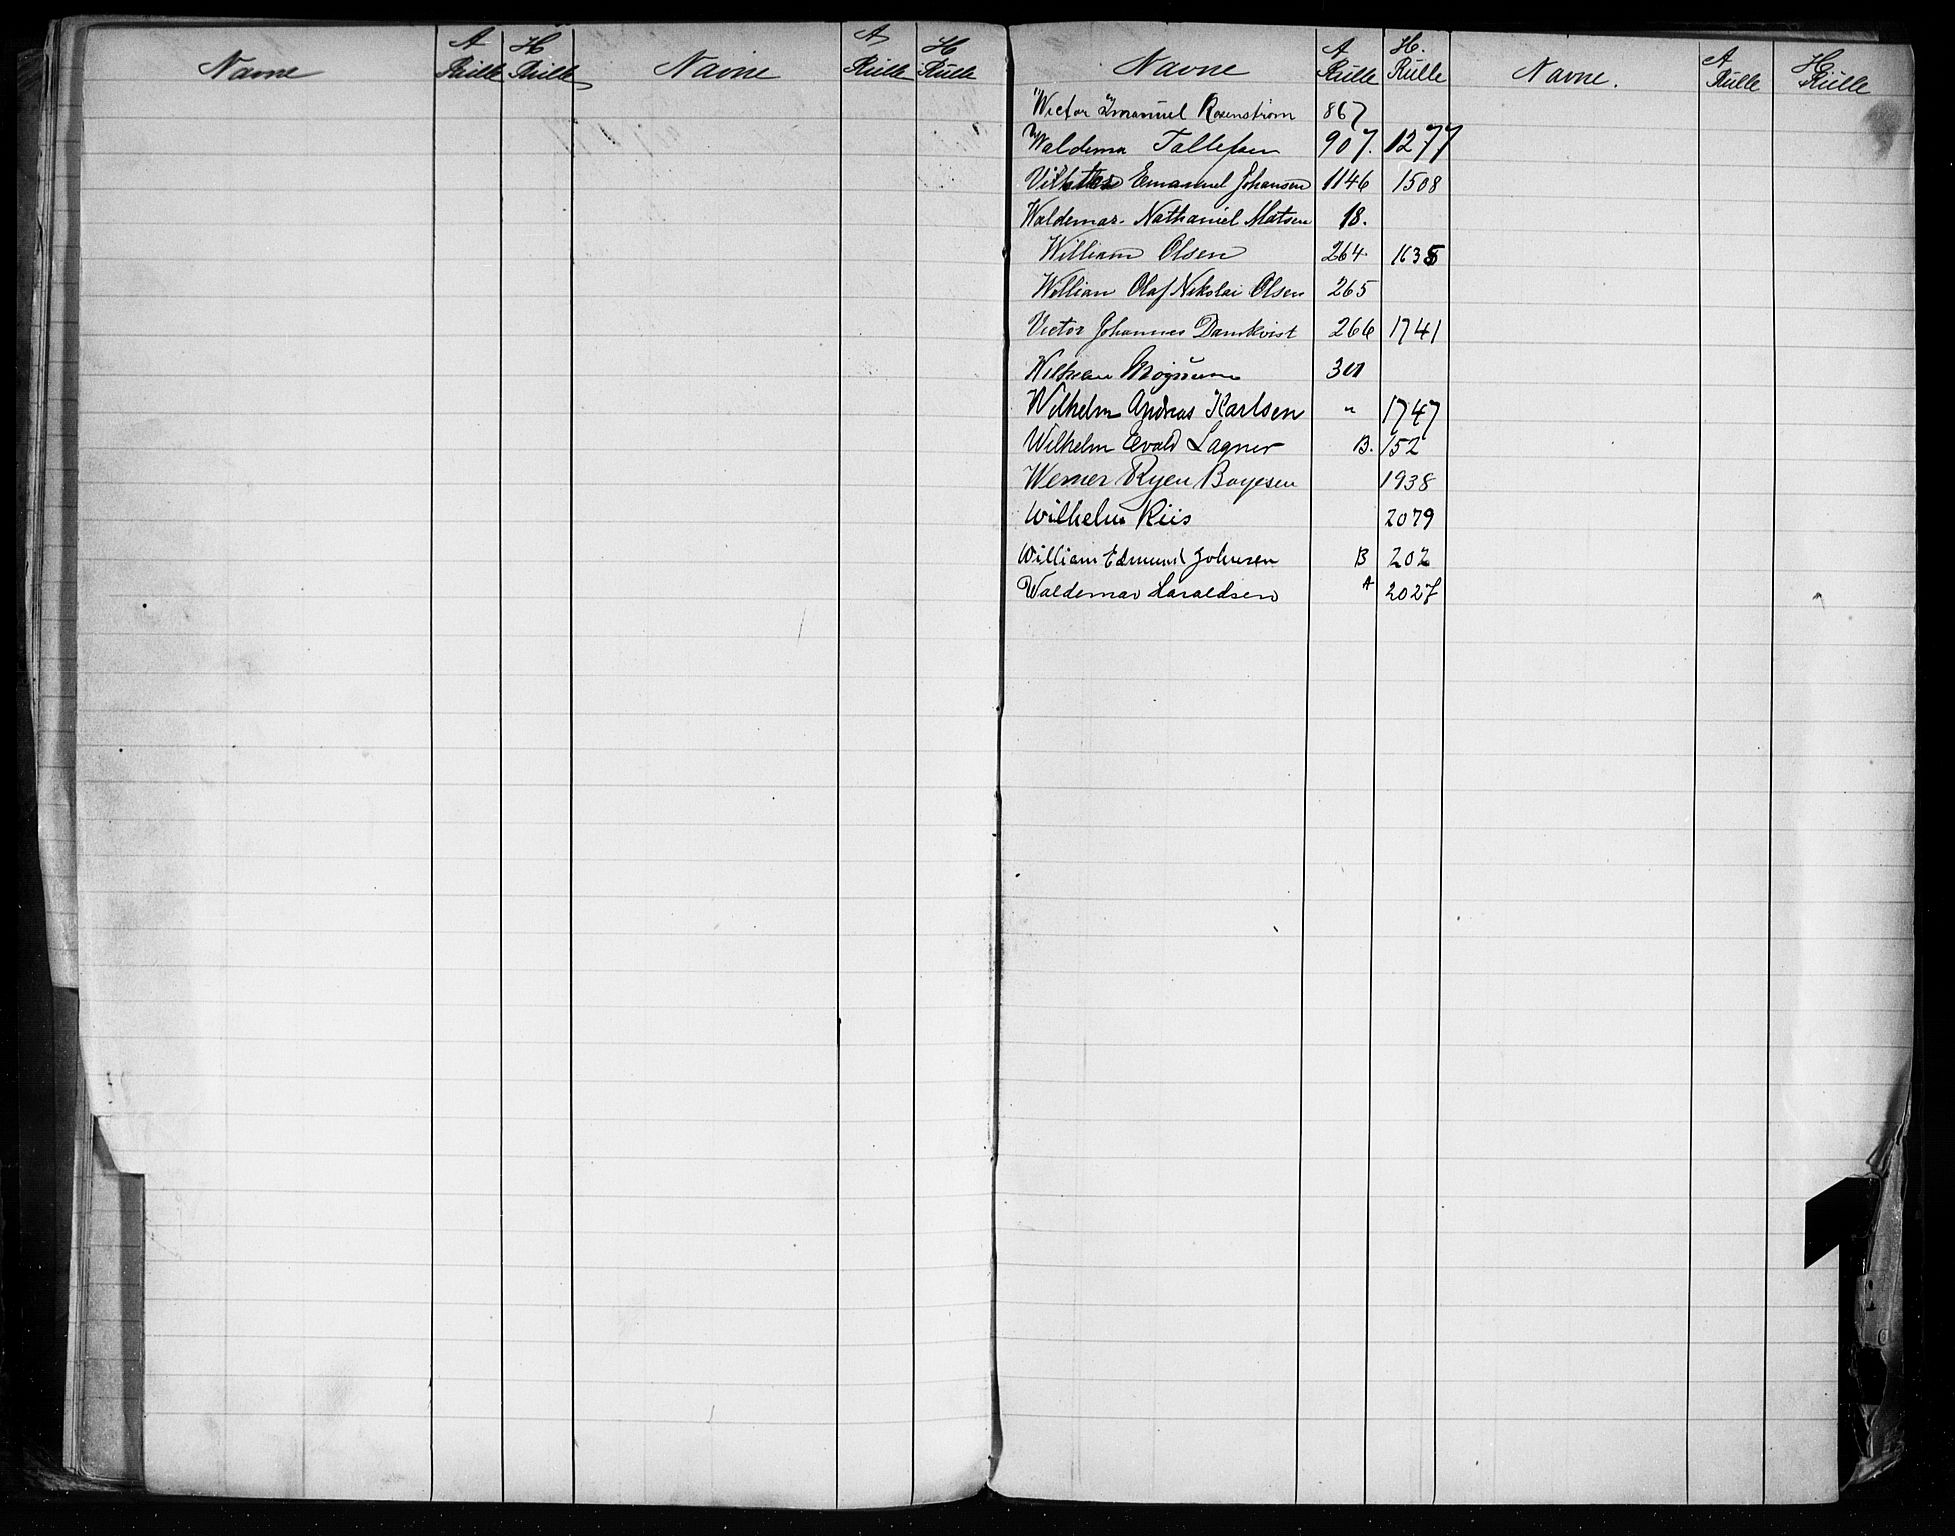 Navne A Rulle H Rulle Navne A Rulle H Rulle
Navne A Rulle H. Rulle Navne. A Rulle H Rulle
Wictor Imanuel Rosenstrøm 867
Waldema Tallefsen 907. 1277
Emanuel Johansen 1146 1508
Waldemar Nathaniel Matsen 18.
William Olsen 264 1635
Willian Olaf Nikolai Olsen 265
Victor Johannes Damkvist 266 1741
Wilhelm 301
Wilhelm Andreas Karlsen " 1747
Wilhelm Evald Lagner B. 152
Werner Ryen Boyesen 1938
Wilhelm Riis 2079
William Edmund Johnsen B 202
Waldemar Haraldsen A 2027